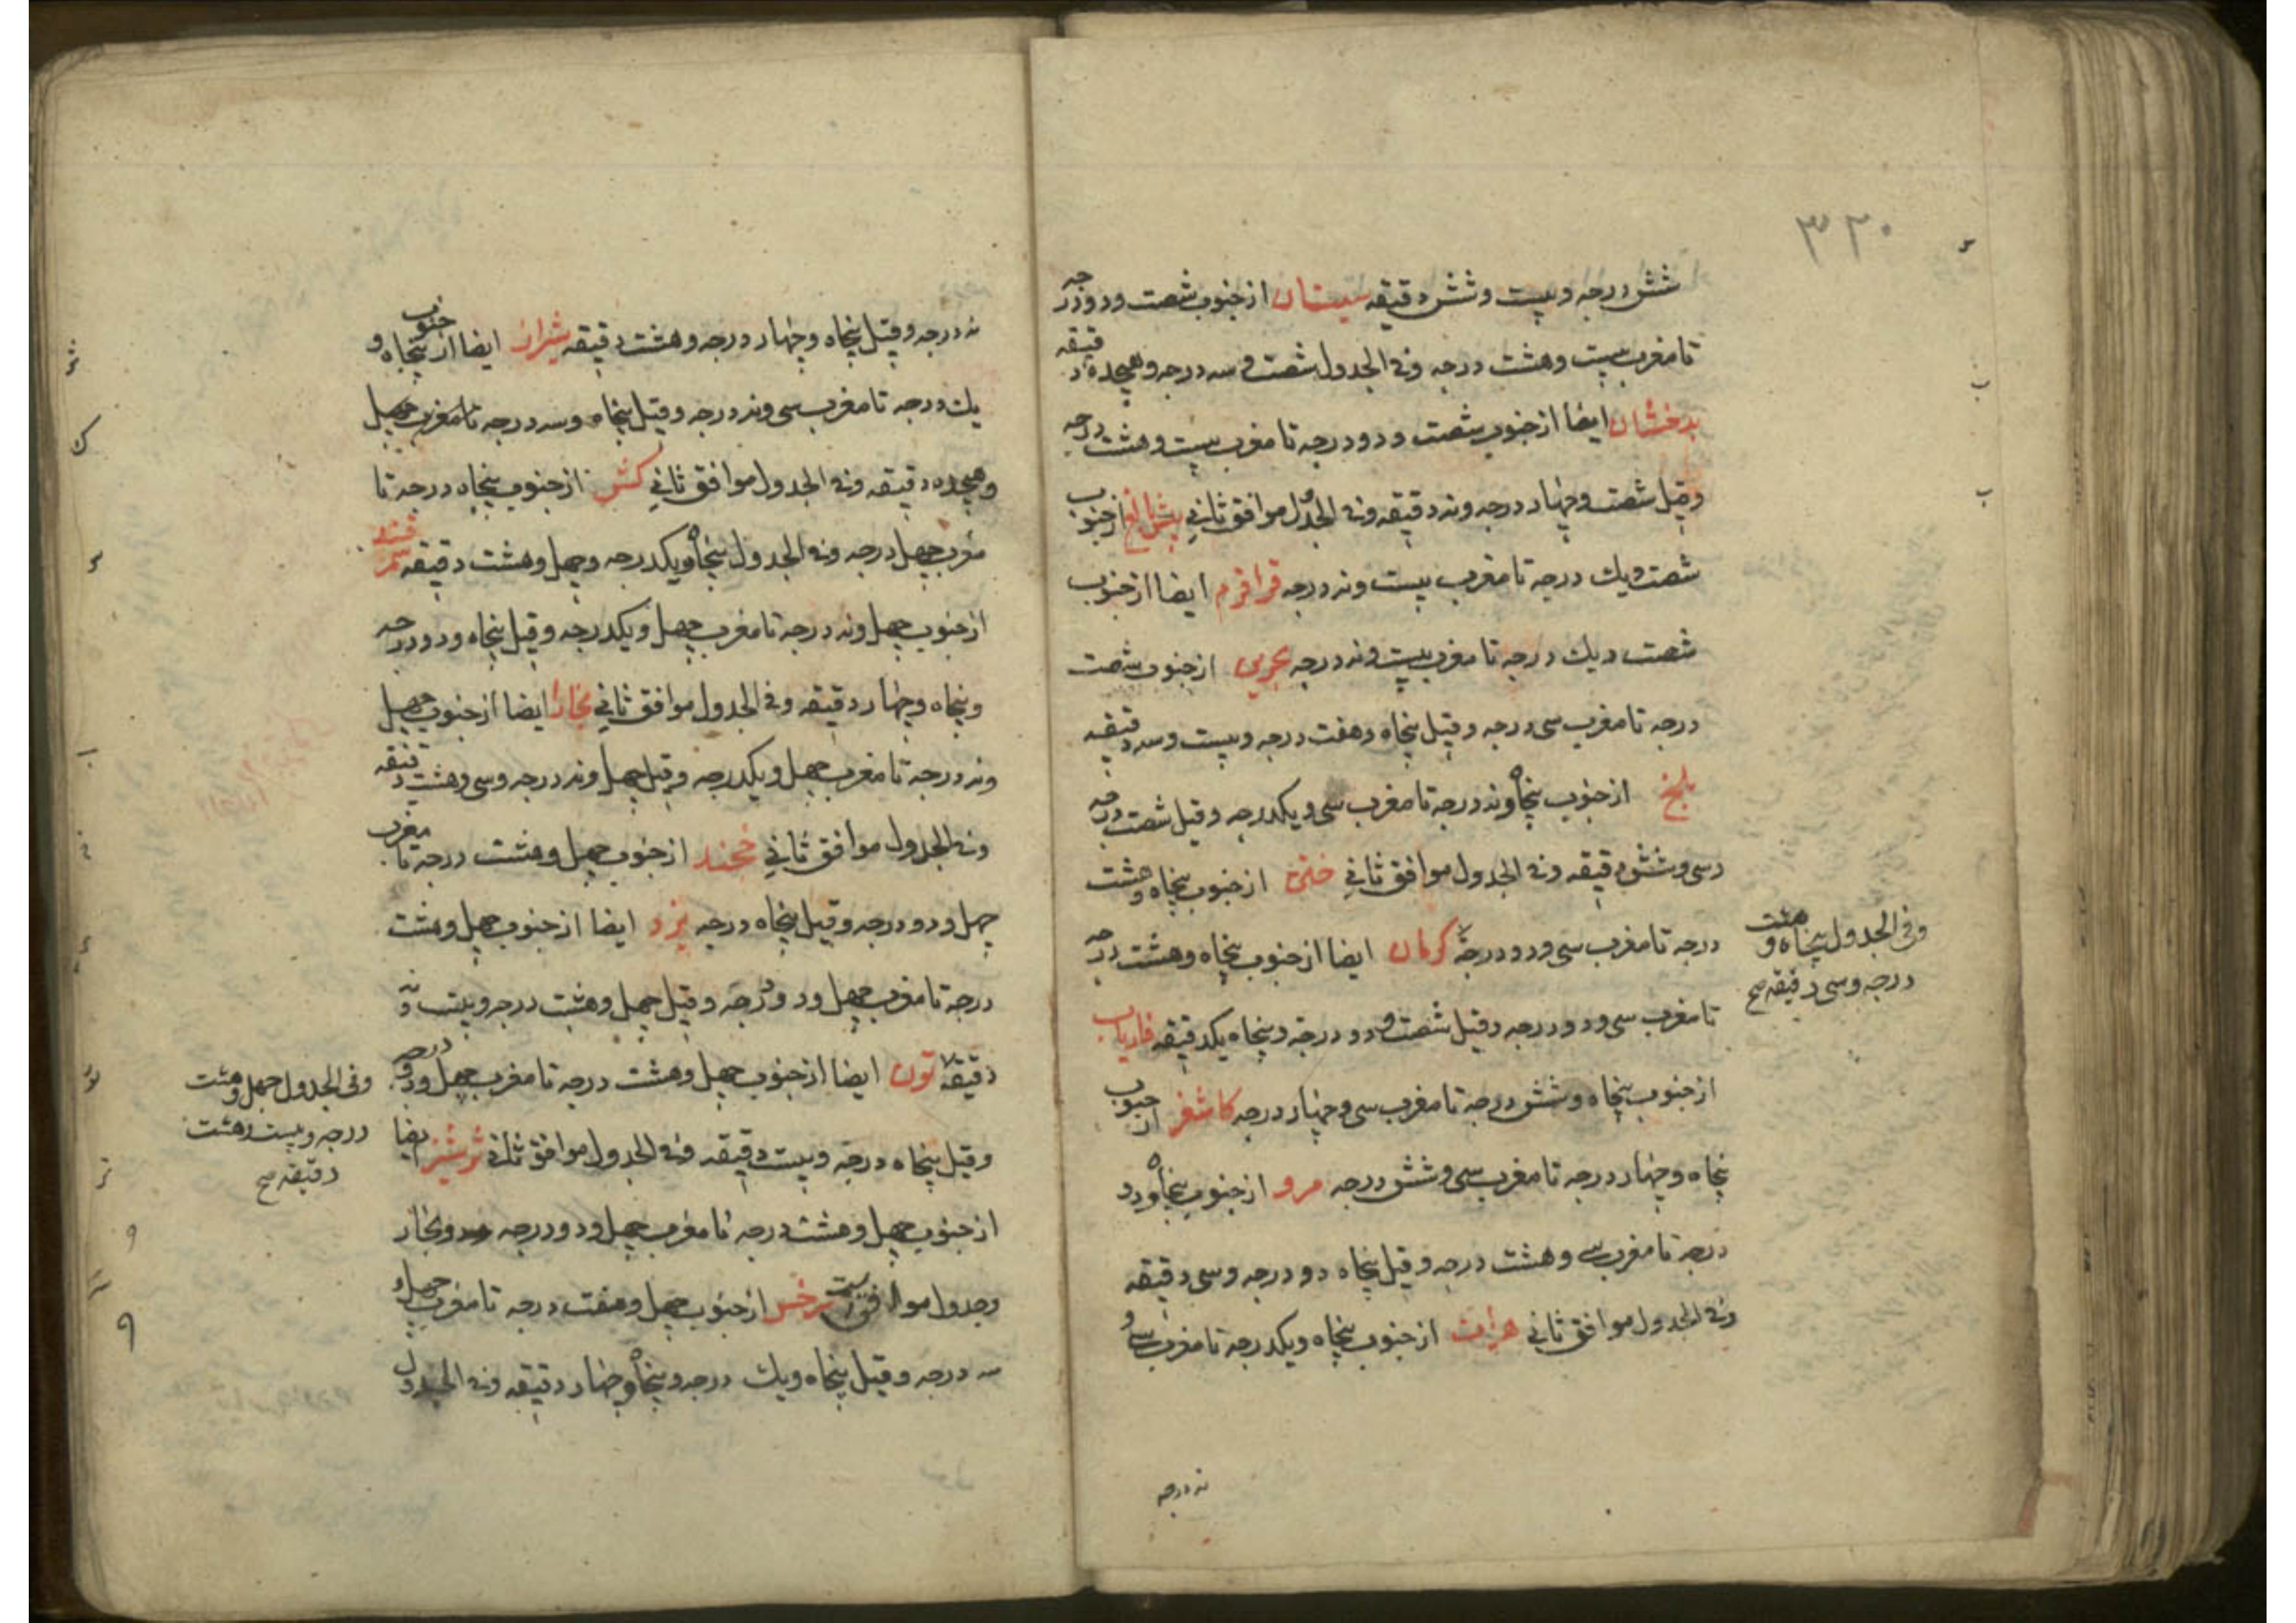 ۳۲۰
شش درجه و بیست و شش دقیقه سیستان از جنوب شصت و دو درجه
تا مغرب بیست و هشت درجه وفی الجدول شصت و سه درجه و هیجده دقیقه
بدخشان ایضا از جنوب شصت و دو درجه تا مغرب بیست و هشت درجه
وقیل شصت و چهار درجه و نه دقیقه وفی الجدول موافق ثانی از جنوب
شصت و یك درجه تا مغرب بیست و نه درجه قراقرم ایضا از جنوب
شصت و یك درجه تا مغرب بیست و نه درجه از جنوب شصت
درجه تا مغرب سی درجه وقیل پنجاه و هفت درجه و بیست و سه دقیقه
بلخ از جنوب پنجاه و نه درجه تا مغرب سی و یکدرجه وقیل شصت درجه
و سی و شش دقیقه وفی الجدول موافق ثانی ختن از جنوب پنجاه و هشت
درجه تا مغرب سی و دو درجه کرمان ایضا از جنوب پنجاه و هشت درجه
تا مغرب سی و دو درجه وقیل شصت و دو درجه و پنجاه یکدقیقه فاریاب
از جنوب پنجاه و شش درجه تا مغرب سی و چهار درجه کاشغر از جنوب
پنجاه و چهار درجه تا مغرب سی و شش درجه مرو از جنوب پنجاه و دو
درجه تا مغرب سی و هشت درجه وقیل پنجاه دو درجه و سی دقیقه
وفی الجدول موافق ثانی هرات از جنوب پنجاه و یکدرجه تا مغرب سی و
نه درجه
وفی الجدول پنجاه و هشت
درجه و سی دقیقه صح
نه درجه وقیل پنجاه و چهار درجه و هشت دقیقه شیراز ایضا از جنوب پنجاه و
یك درجه تا مغرب سی و نه درجه وقیل پنجاه و سه درجه تا مغرب چهل
و هیجده دقیقه وفی الجدول موافق ثانی کش از جنوب پنجاه درجه تا
مغرب چهل درجه وفی الجدول پنجاه و یکدرجه و چهل و هشت دقیقه سمرقند
از جنوب چهل و نه درجه تا مغرب چهل و یکدرجه وقیل پنجاه و دو درجه
و پنجاه و چهار دقیقه وفی الجدول موافق ثانی بخارا ایضا از جنوب چهل
و نه درجه تا مغرب چهل و یکدرجه وقیل چهل و نه درجه و سی و هشت دقیقه
وفی الجدول موافق ثانی خجند از جنوب چهل و هشت درجه تا مغرب
چهل و دو درجه وقیل پنجاه درجه یزد ایضا از جنوب چهل و هشت
درجه تا مغرب چهل و دو درجه وقیل چهل و هشت درجه و بیست و
دقیقه تون ایضا از جنوب چهل و هشت درجه تا مغرب چهل و دو درجه
وقیل پنجاه درجه و بیست دقیقه وفی الجدول موافق ثانی ترشیز ایضا
از جنوب چهل و هشت درجه تا مغرب چهل و دو درجه
وجدول موافق است سرخس از جنوب چهل و هفت درجه تا مغرب چهل و
سه درجه وقیل پنجاه و یك درجه و پنجاه و چهار دقیقه وفی الجدول
وفی الجدول چهل و هشت
درجه و بیست و هشت
دقیقه صح